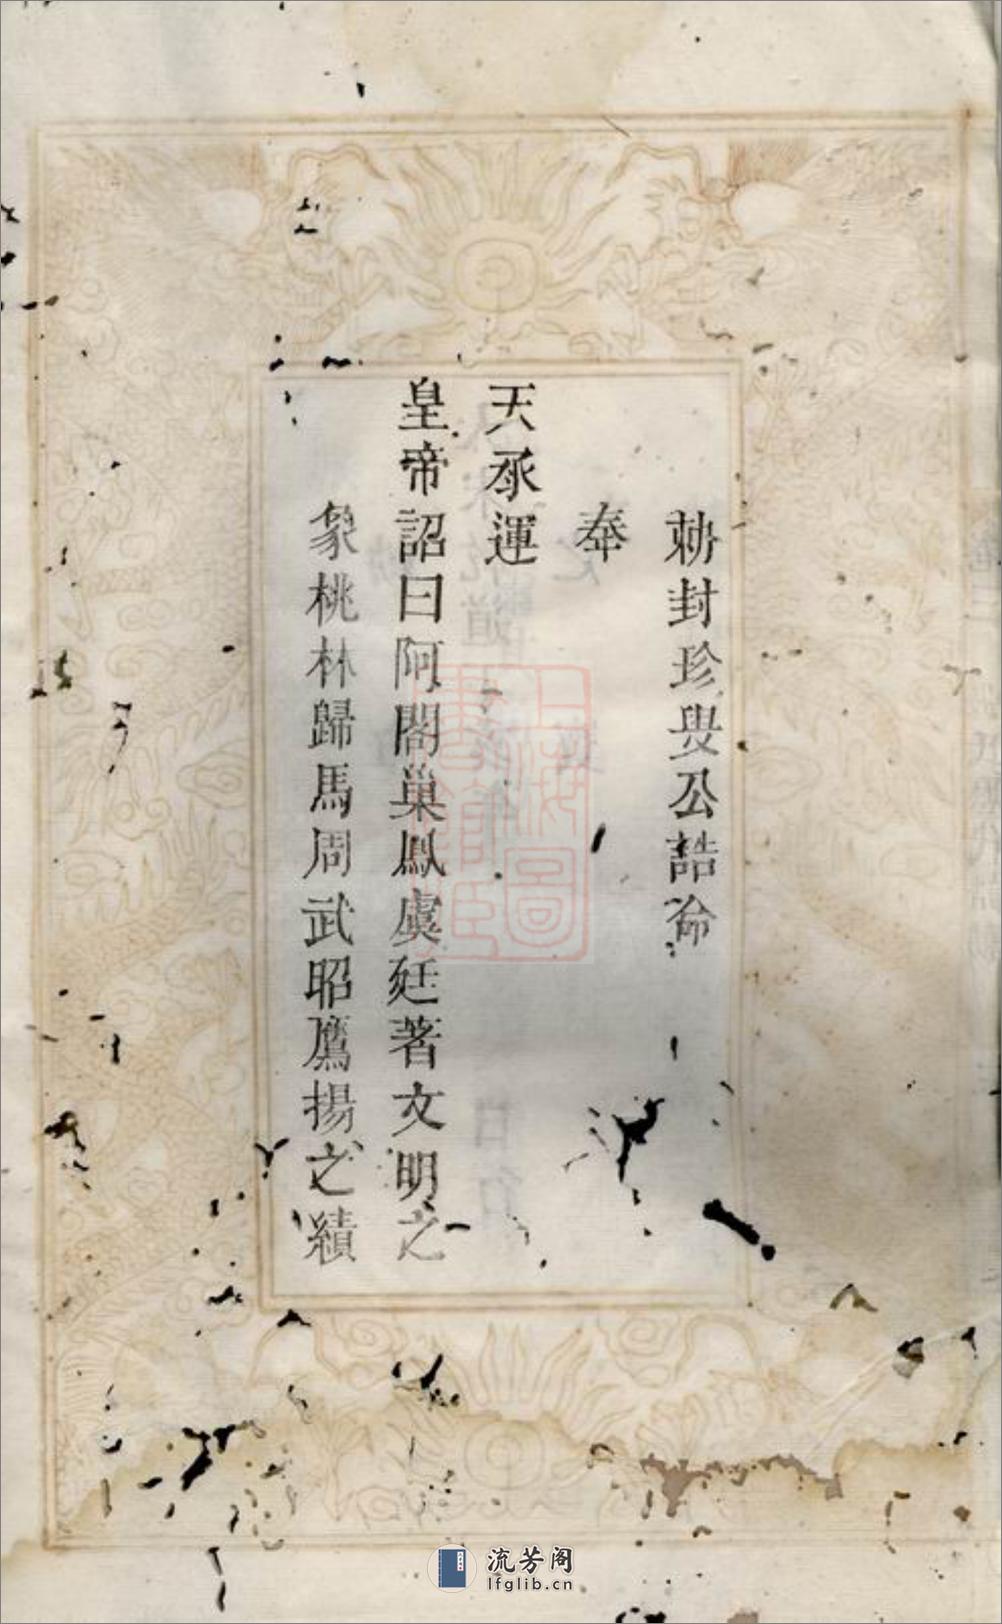 勅封珍叟公誥命
奉
天承運
皇帝詔曰阿閣巢鳳虞廷著文明之
象桃林歸馬周武昭鷹揚之績
上海圖
書館藏
流芳阁
lfglib.cn